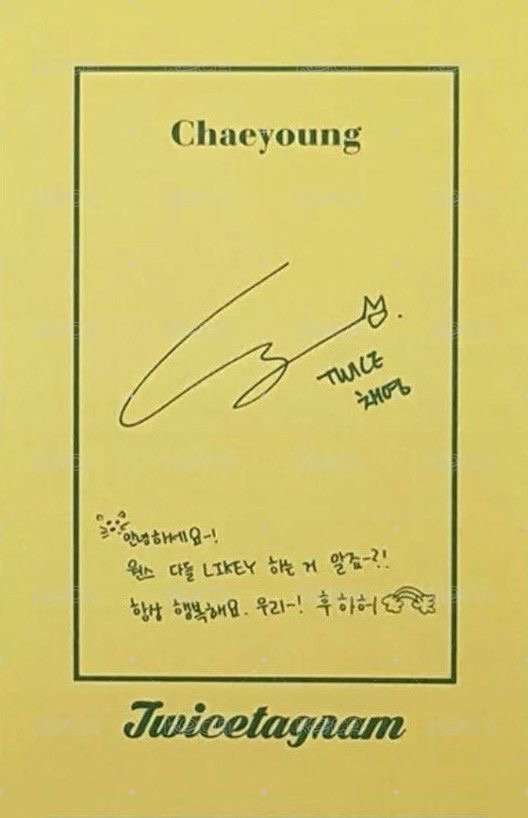 Chaeyoung
TWICE
채영
안녕하세요~!
원스 다들 LIKEY 하는 거 알죠~?!
항상 행복해요. 우리~! 후하하
Twicetagram